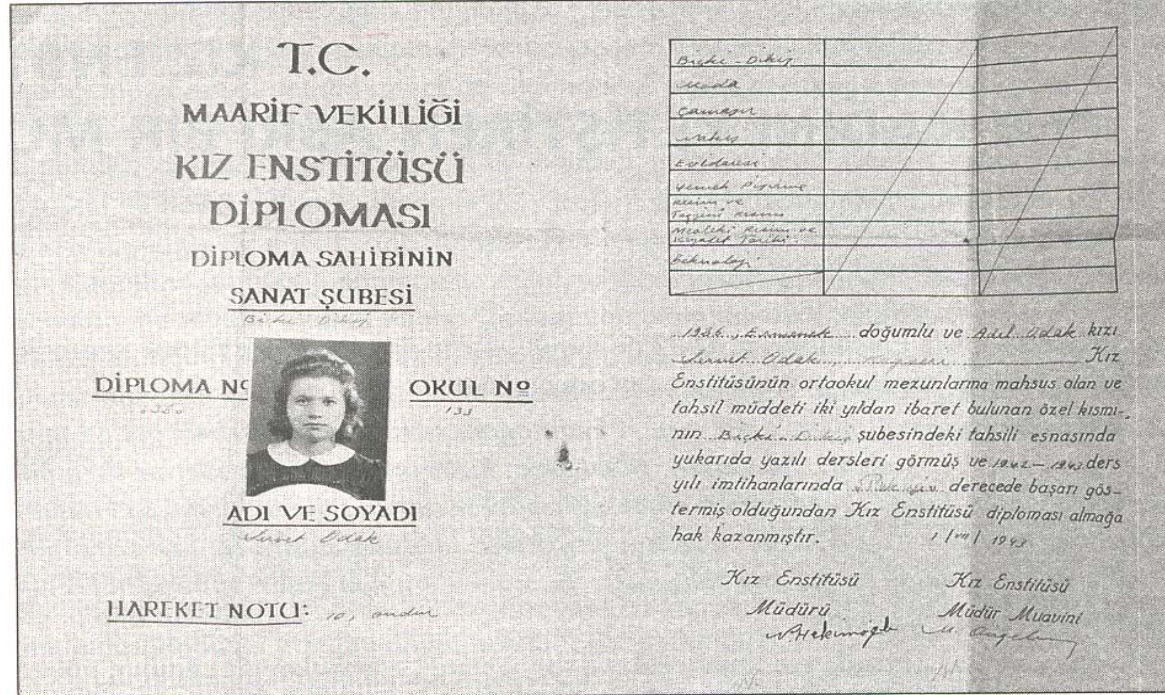 T.C.
MAARİF VEKİLLİĞİ
KIZ ENSTİTÜSÜ
DİPLOMASI
DİPLOMA SAHİBİNİN
SANAT ŞUBESİ
Biçki Dikiş
DİPLOMA Nº
OKUL Nº
133
ADI VE SOYADI
Odak
HAREKET NOTU: 10, ondur
Biçki-Dikiş
Moda
Çamaşır
Nakış
Evidaresi
Yemek Pişirme
Resim ve
Tezyini Resim
Mesleki Resim ve
Kıyafet Tarihi
Teknoloji
1926, Ermenek doğumlu ve Adil Odak kızı
Odak Kayseri Kız
Enstitüsünün ortaokul mezunlarına mahsus olan ve
tahsil müddeti iki yıldan ibaret bulunan özel kısmı-
nın Biçki-Dikiş şubesindeki tahsili esnasında
yukarıda yazılı dersleri görmüş ve 1942-1943 ders
yılı imtihanlarında Pek iyi derecede başarı gös-
termiş olduğundan Kız Enstitüsü diploması almağa
hak kazanmıştır. 1/VII/1943
Kız Enstitüsü
Müdürü
Kız Enstitüsü
Müdür Muavini